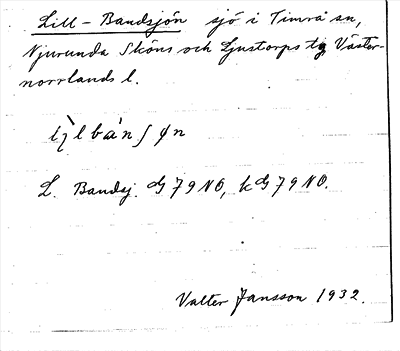 Lill-Bandsjön sjö i Timrå sn,
Njurunda Sköns och Ljustorps tg Väster-
norrlands l.
L. Bandsj. G 79 NO, kG 79 NO.
Valter Jansson 1932.